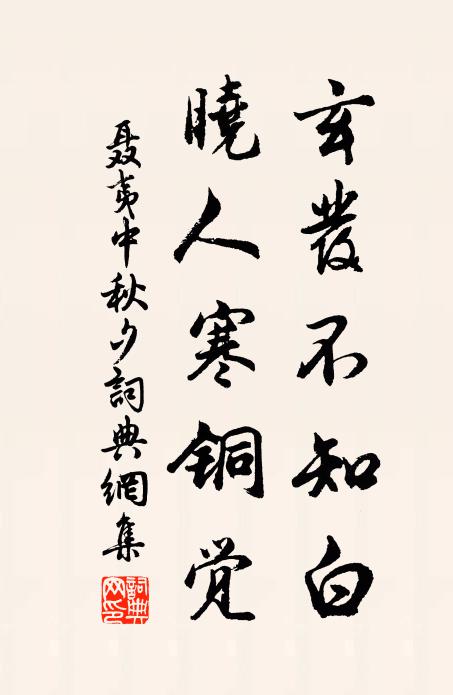 玄發不知白
曉人寒铜觉
聂夷中秋夕詞典網集
詞典网印